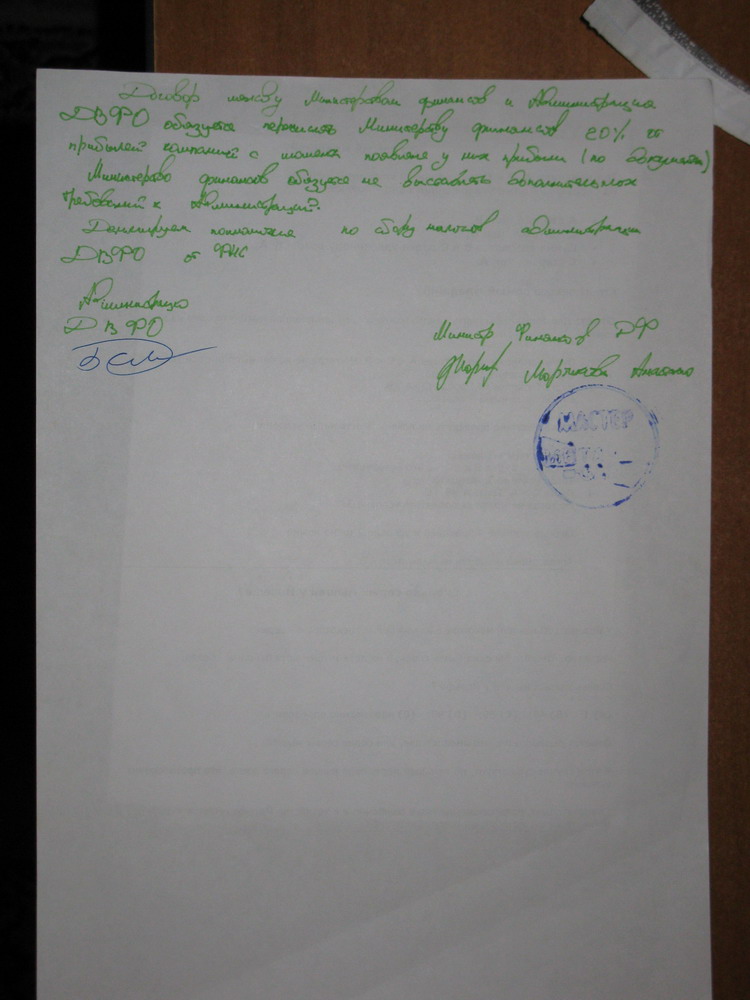 Договор между Министерством финансов и Администрация
ДВФО обязуется перечислять Министерству финансов 20% от
прибылей компаний с момента появления у них прибыли (по документам)
Министерство финансов обязуется не выставлять дополнительных
требований к Администрации.
Делегируем полномочия по сбору налогов администрации
ДВФО от ФНС
Администрация
ДВФО
Министр Финансов РФ
МАСТЕР